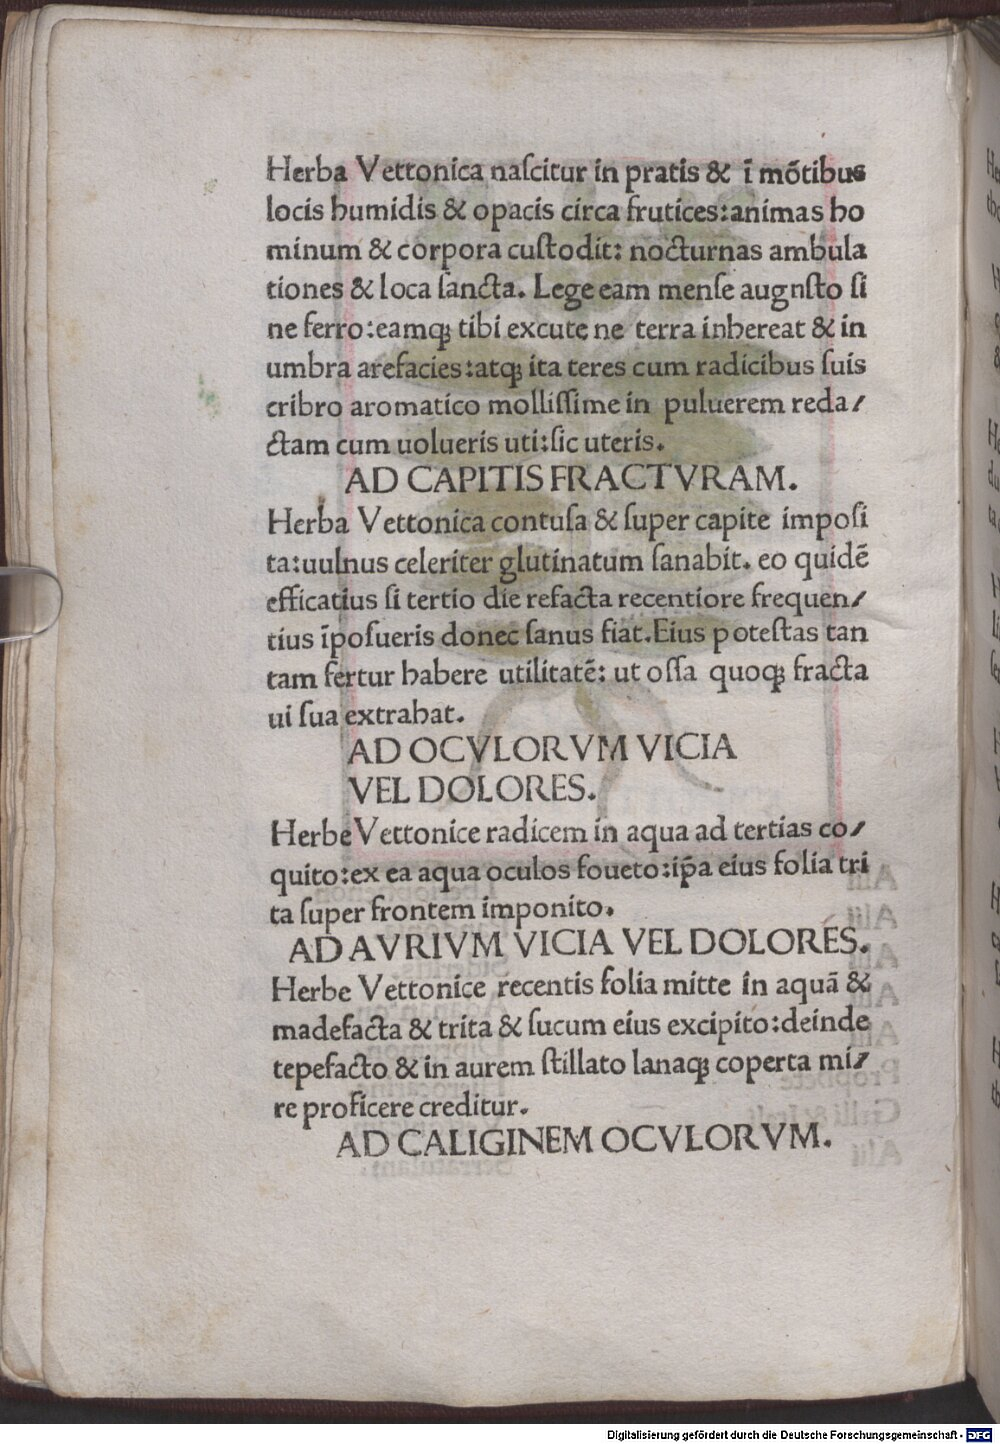 Herba Vettonica naſcitur in pratis & ī mõtibus
locis humidis & opacis circa frutices: animas ho
minum & corpora cuſtodit: nocturnas ambula
tiones & loca ſancta. Lege eam menſe augnſto ſi
ne ferro: eamqꝫ tibi excute ne terra inhereat & in
umbra arefacies: atqꝫ ita teres cum radicibus ſuis
cribro aromatico molliſſime in puluerem reda/
ctam cum uolueris uti: ſic uteris.
AD CAPITIS FRACTVRAM.
Herba Vettonica contuſa & ſuper capite impoſi
ta: uulnus celeriter glutinatum ſanabit. eo quidẽ
efficatius ſi tertio die refacta recentiore frequen/
tius īpoſueris donec ſanus fiat. Eius poteſtas tan
tam fertur habere utilitatẽ: ut oſſa quoqꝫ fracta
ui ſua extrahat.
AD OCVLORVM VICIA
VEL DOLORES.
Herbe Vettonice radicem in aqua ad tertias co/
quito: ex ea aqua oculos foueto: ip̄a eius folia tri
ta ſuper frontem imponito.
AD AVRIVM VICIA VEL DOLORES.
Herbe Vettonice recentis folia mitte in aquā &
madefacta & trita & ſucum eius excipito: deinde
tepefacto & in aurem ſtillato lanaqꝫ coperta mi/
re proficere creditur.
AD CALIGINEM OCVLORVM.
Digitalisierung gefördert durch die Deutsche Forschungsgemeinschaft - DFG